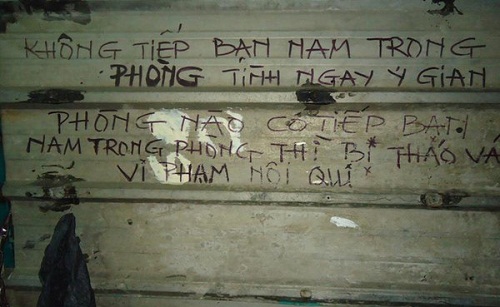 KHÔNG TIẾP BẠN NAM TRONG
PHÒNG TÍNH NGAY Ý GIAN
PHÒNG NÀO CÓ TIẾP BẠN
NAM TRONG PHONG THÌ BỊ THÁO VÁ
VI PHAM NÔI QUÍ